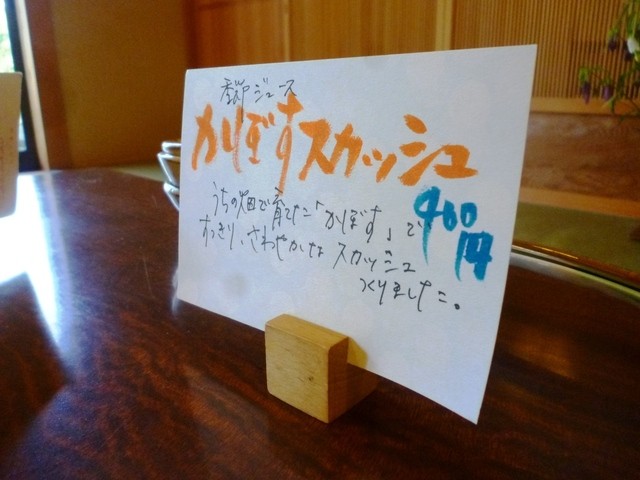 季節ジュース
かぼすスカッシュ
うちの畑で育てた「かぼす」で
400円
すっきり、さわやかな スカッシュ
つくりました。